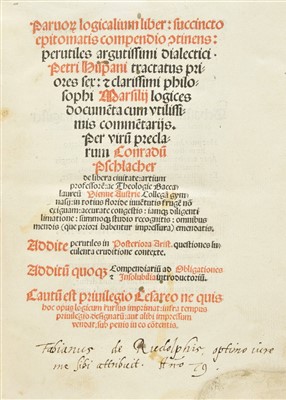 Paruorũ logicalium liber: succincto
epitomatis compendio ↄtinens:
perutiles argutissimi dialectici.
Petri Hispani tractatus pri
ores sex: ⁊ clarissimi philo
sophi Marsilij logices
documẽta: cum vtilissi
mis commẽtarijs.
Per virũ precla
rum Conradũ
Pschlacher
de libera ciuitate: artium
professorẽ: ac Theologie Bacca
laureũ Vienne Austrie Collegã gym
nasij: in totius floride iuuẽtutis frugẽ nõ
exiguam: accurate congestis: iamq; diligenti
limatione: summoq; studio recognitis: omnibus
mendis (que priori habentur impressura) emendatis.
Addite perutiles in Posteriora Arist. questiones su
culenta eruditione contexte.
Additũ quoq; Compendiariũ ad Obligationes
⁊ Insolubilia introductoriũ.
Cautũ est priuilegio Cesareo ne quis
hoc opus logicum rursus imprimat: infra tempus
priuilegio designatũ: aut alibi impressum
vendat: sub penis in eo cõtentis.
Fabianus de Rudolphis, optimo iure
me sibi attribuit. Anno 79.